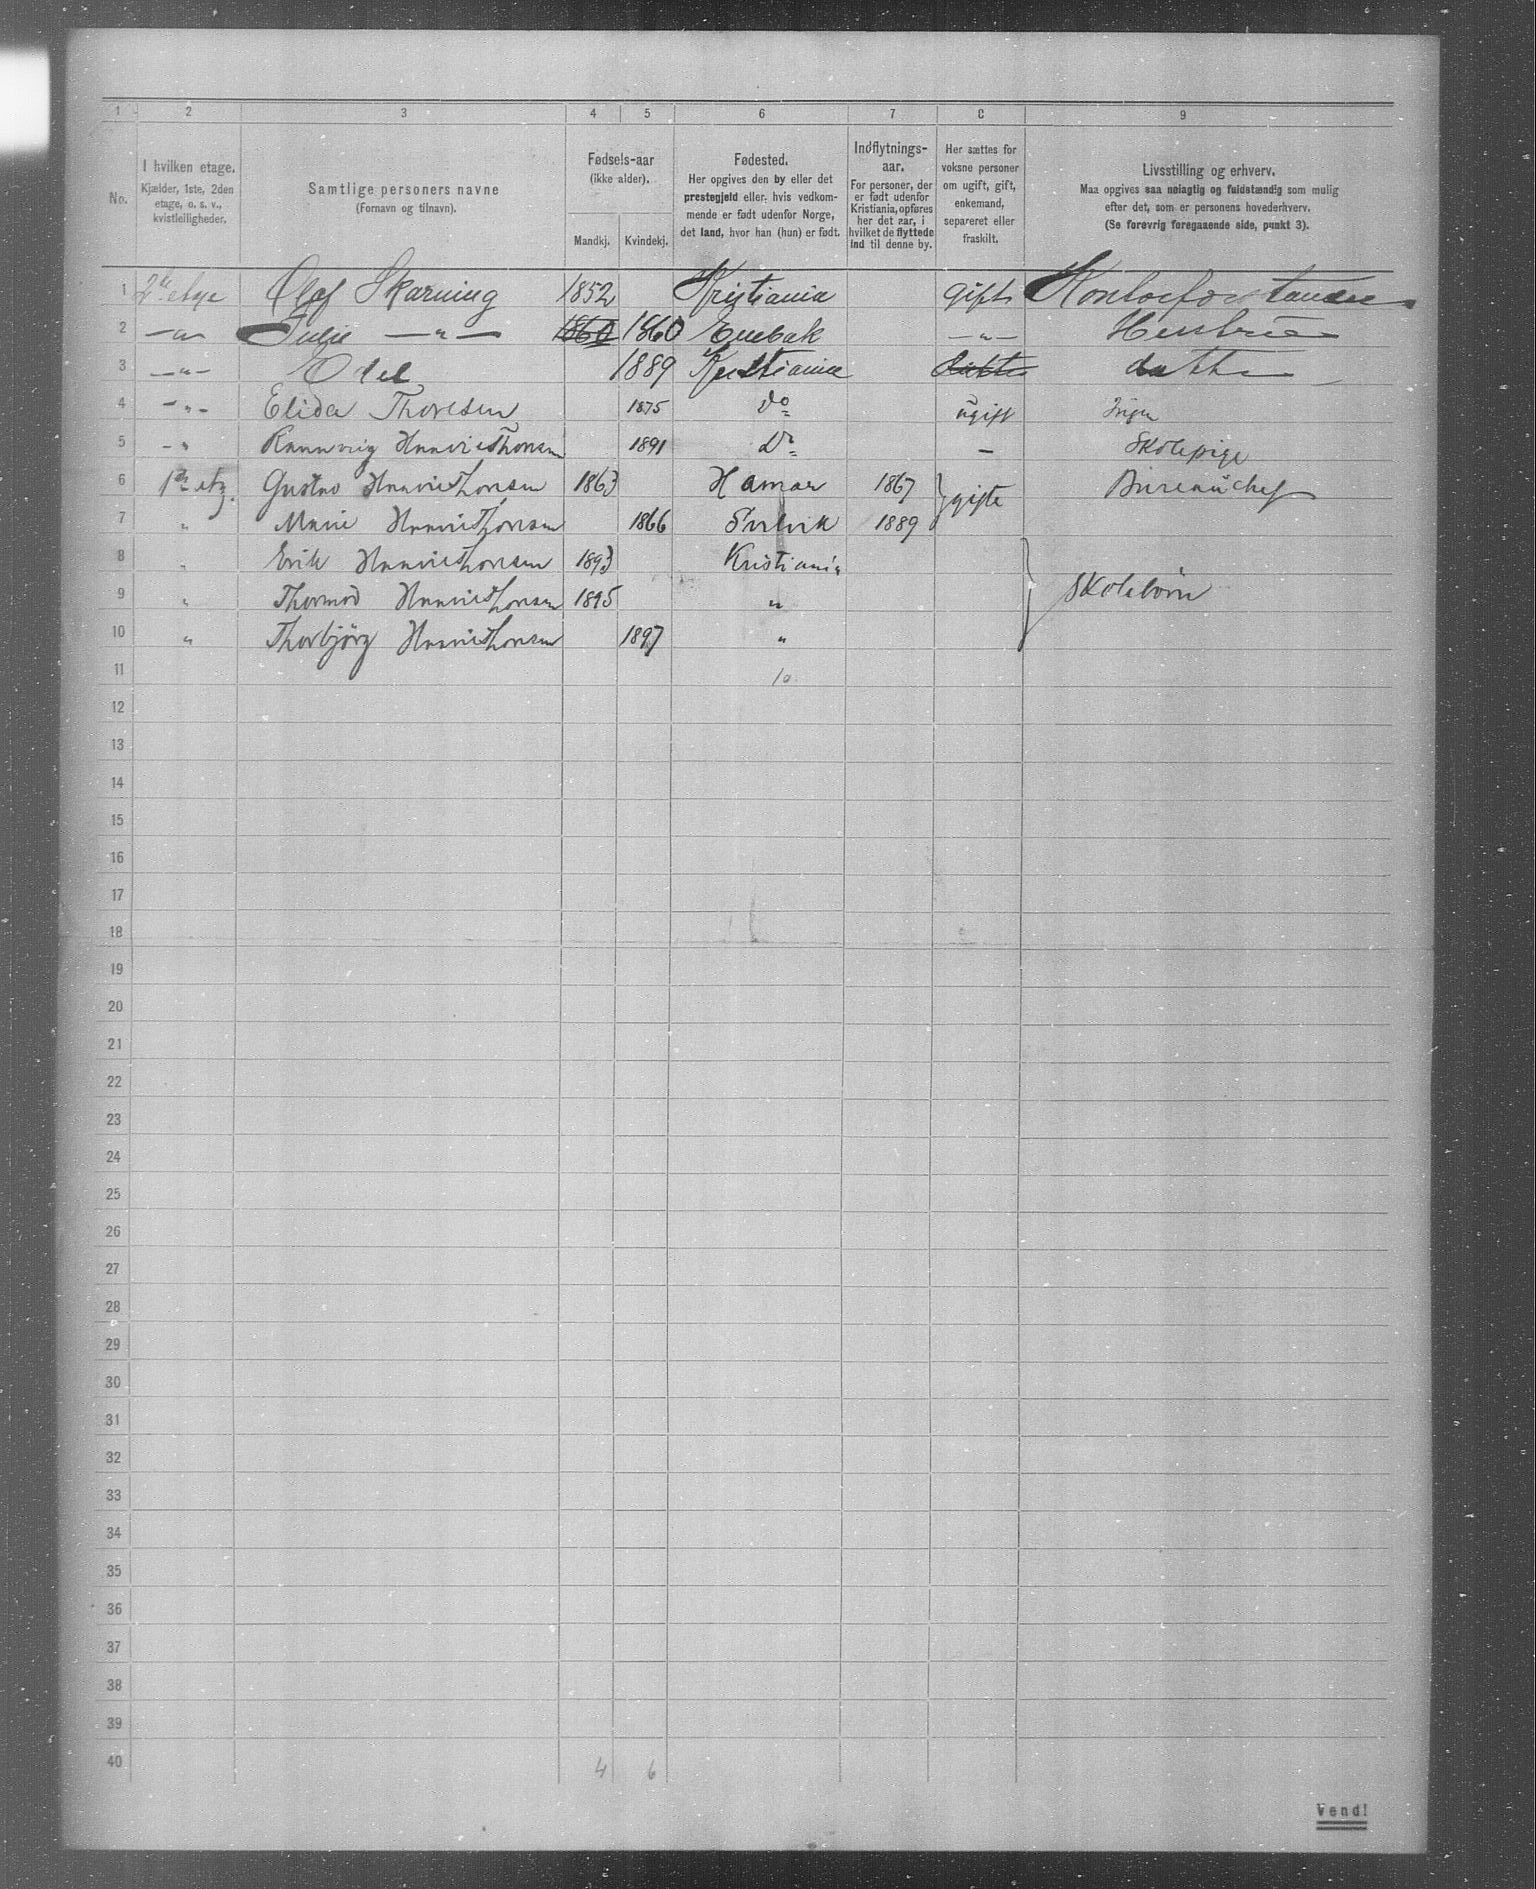 1 2 3 4 5 6 7 8 9
No.
I hvilken etage.
Kjælder, 1ste, 2den
etage, o. s. v.,
kvistleiligheder.
Samtlige personers navne
(Fornavn og tilnavn).
Fødsels-aar
(ikke alder).
Mandkj. Kvindekj.
Fødested.
Her opgives den by eller det
prestegjeld eller, hvis vedkom-
mende er født udenfor Norge,
det land, hvor han (hun) er født.
Indflytnings-
aar.
For personer, der
er født udenfor
Kristiania, opføres
her det aar, i
hvilket de flyttede
ind til denne by.
Her sættes for
voksne personer
om ugift, gift,
enkemand,
separeret eller
fraskilt.
Livsstilling og erhverv.
Maa opgives saa nøiagtig og fuldstændig som mulig
efter det, som er personens hovederhverv.
(Se forøvrig foregaaende side, punkt 3).
1 2den etage Olaf Skarning 1852 Kristiania gift Kontorforstander
2 —"— Julie —"— 1860 1860 Enebak —"— Husfrue
3 —"— Odel 1889 Kristiania datter datter
4 —"— Elida Thoresen 1875 do ugift Ingen
5 —" 1891 do — Skolepige
6 1ste etg. Gustav HnavieThoresen 1863 Hamar 1867 } gifte Bureauchef
7 " Marie 1866 Svelvik 1889
8 " Erik 1893 Kristiania } Skolebørn
9 " Thormod 1895 "
10 " Thorbjörg 1897 "
11 10
12
13
14
15
16
17
18
19
20
21
22
23
24
25
26
27
28
29
30
31
32
33
34
35
36
37
38
39
40 4 6
Vend!